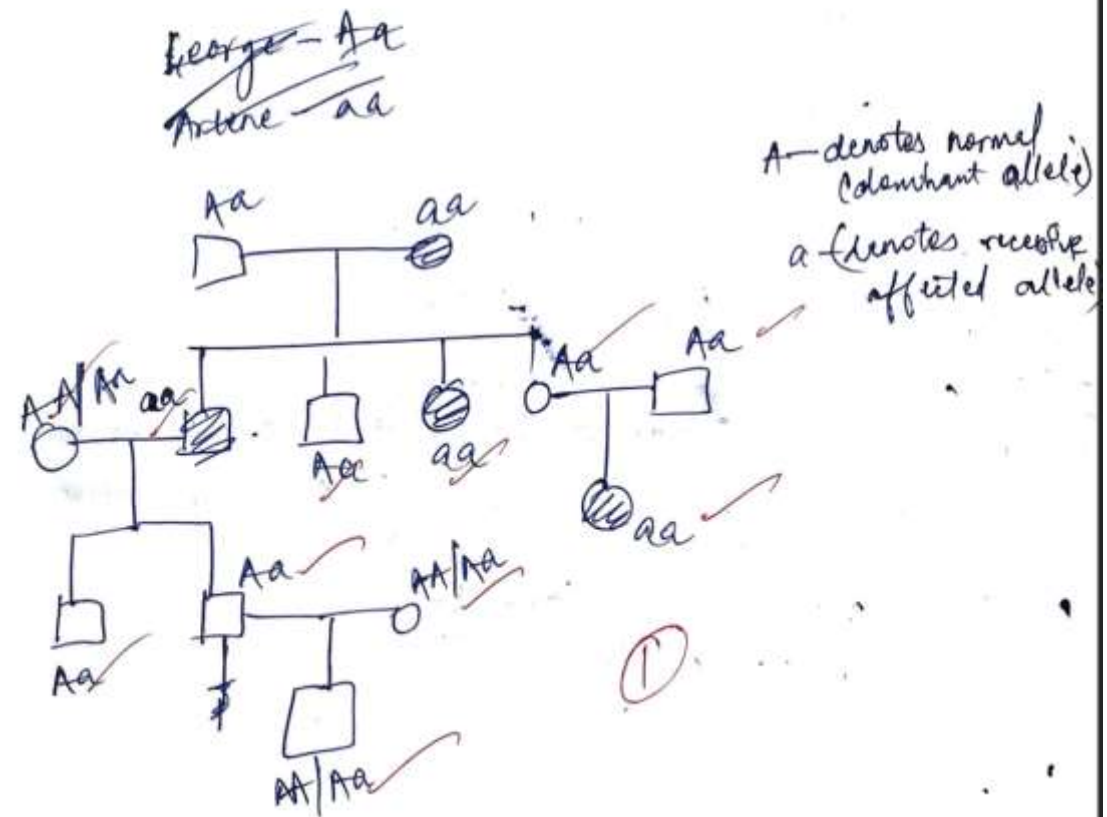 George - Aa
Arlene - aa
A - denotes normal
(dominant allele)
a - (denotes recessive
affected allele)
Aa
aa
Aa
Aa
AA/Aa
aa
Aa
aa
aa
Aa
AA/Aa
Aa
1
AA/Aa